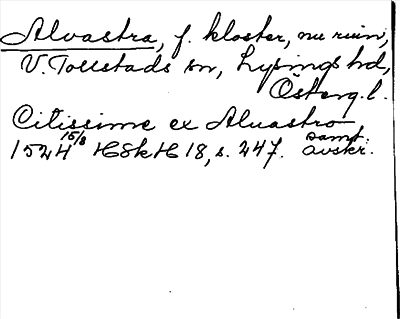 Alvastra, f. kloster, nu ruin,
V. Tollstads sn, Lysings hd,
Österg. l.
Citissime ex Aluastro
1524 15/8 HSH 18, s. 247. samt. avskr.